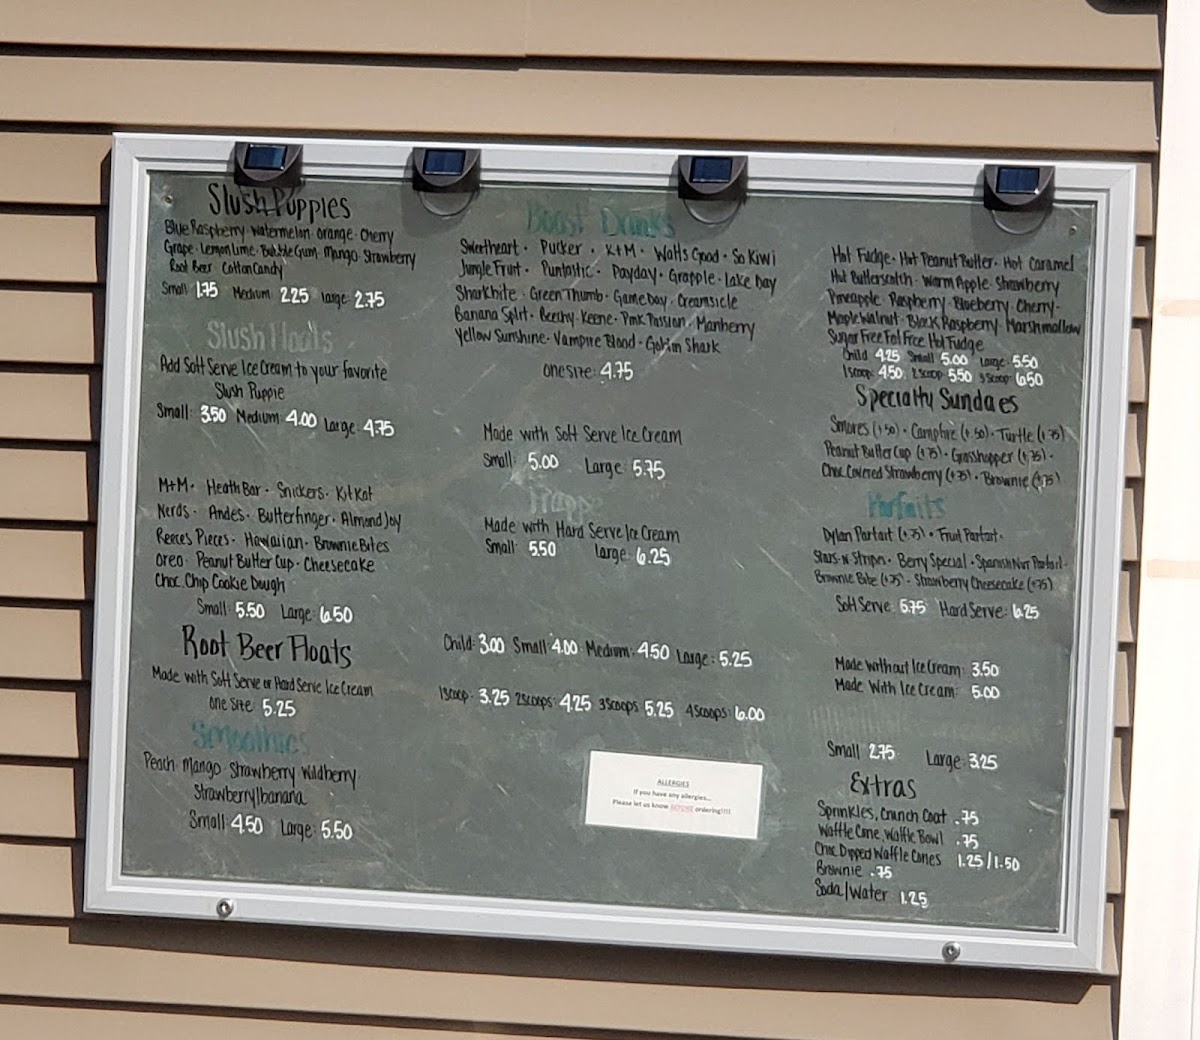 Slush Puppies
Blue Raspberry · Watermelon · Orange · Cherry
Grape · Lemon Lime · Bubble Gum · Mango · Strawberry
Root Beer · Cotton Candy
Small 1.75 Medium 2.25 Large 2.75
Slush Floats
Add Soft Serve Ice Cream to your favorite
Slush Puppie
Small: 3.50 Medium 4.00 Large 4.75
M+M · Heath Bar · Snickers · KitKat
Nerds · Andes · Butterfinger · Almond Joy
Reeces Pieces · Hawaiian · Brownie Bites
Oreo · Peanut Butter Cup · Cheesecake
Choc. Chip Cookie Dough
Small: 5.50 Large: 6.50
Root Beer Floats
Made with Soft Serve or Hard Serve Ice Cream
One Size 5.25
Smoothies
Peach · Mango · Strawberry · Wildberry
Strawberry/banana
Small: 4.50 Large: 5.50
Boost Drinks
Sweetheart · Pucker · K+M · Watts Good · So Kiwi
Jungle Fruit · Puntastic · Payday · Grapple · Lake Day
Sharkbite · Green Thumb · Gameday · Creamsicle
Banana Split · Beechy · Keene · Pink Passion · Manberry
Yellow Sunshine · Vampire Blood · Shark
One Size: 4.75
Made with Soft Serve Ice Cream
Small: 5.00 Large: 5.75
Frappe
Made with Hard Serve Ice Cream
Small: 5.50 Large: 6.25
Child: 3.00 Small: 4.00 Medium: 4.50 Large: 5.25
1 Scoop: 3.25 2 Scoops: 4.25 3 Scoops: 5.25 4 Scoops: 6.00
ALLERGIES
If you have any allergies...
Please let us know BEFORE ordering!!!!
Hot Fudge · Hot Peanut Butter · Hot Caramel
Hot Butterscotch · Warm Apple · Strawberry
Pineapple · Raspberry · Blueberry · Cherry ·
Maple Walnut · Black Raspberry · Marshmallow
Sugar Free Fat Free Hot Fudge
Child 4.25 Small 5.00 Large: 5.50
1 Scoop: 4.50 2 Scoop 5.50 3 Scoop: 6.50
Specialty Sundaes
Smores (+.50) · Campfire (+.50) · Turtle (+.75)
Peanut Butter Cup (+.75) · Grasshopper (+.75) ·
Choc. Covered Strawberry (+.75) · Brownie (+.75)
Parfaits
Dylan Parfait (+.75) · Fruit Parfait ·
Stars-N-Strips · Berry Special · Spanish Nut Parfait ·
Brownie Bite (+.75) · Strawberry Cheesecake (+.75)
Soft Serve: 5.75 Hard Serve: 6.25
Made Without Ice Cream: 3.50
Made With Ice Cream: 5.00
Small 2.75 Large: 3.25
Extras
Sprinkles, Crunch Coat .75
Waffle Cone, Waffle Bowl .75
Choc Dipped Waffle Cones 1.25/1.50
Brownie .75
Soda/Water 1.25